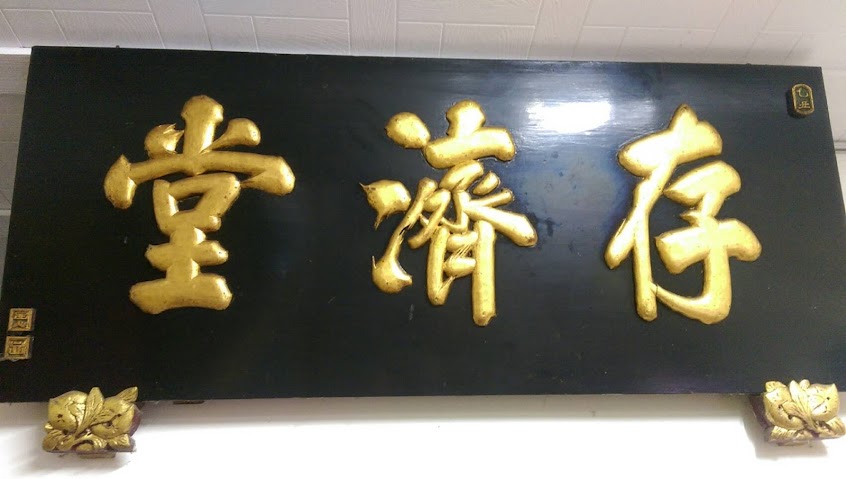 存濟堂